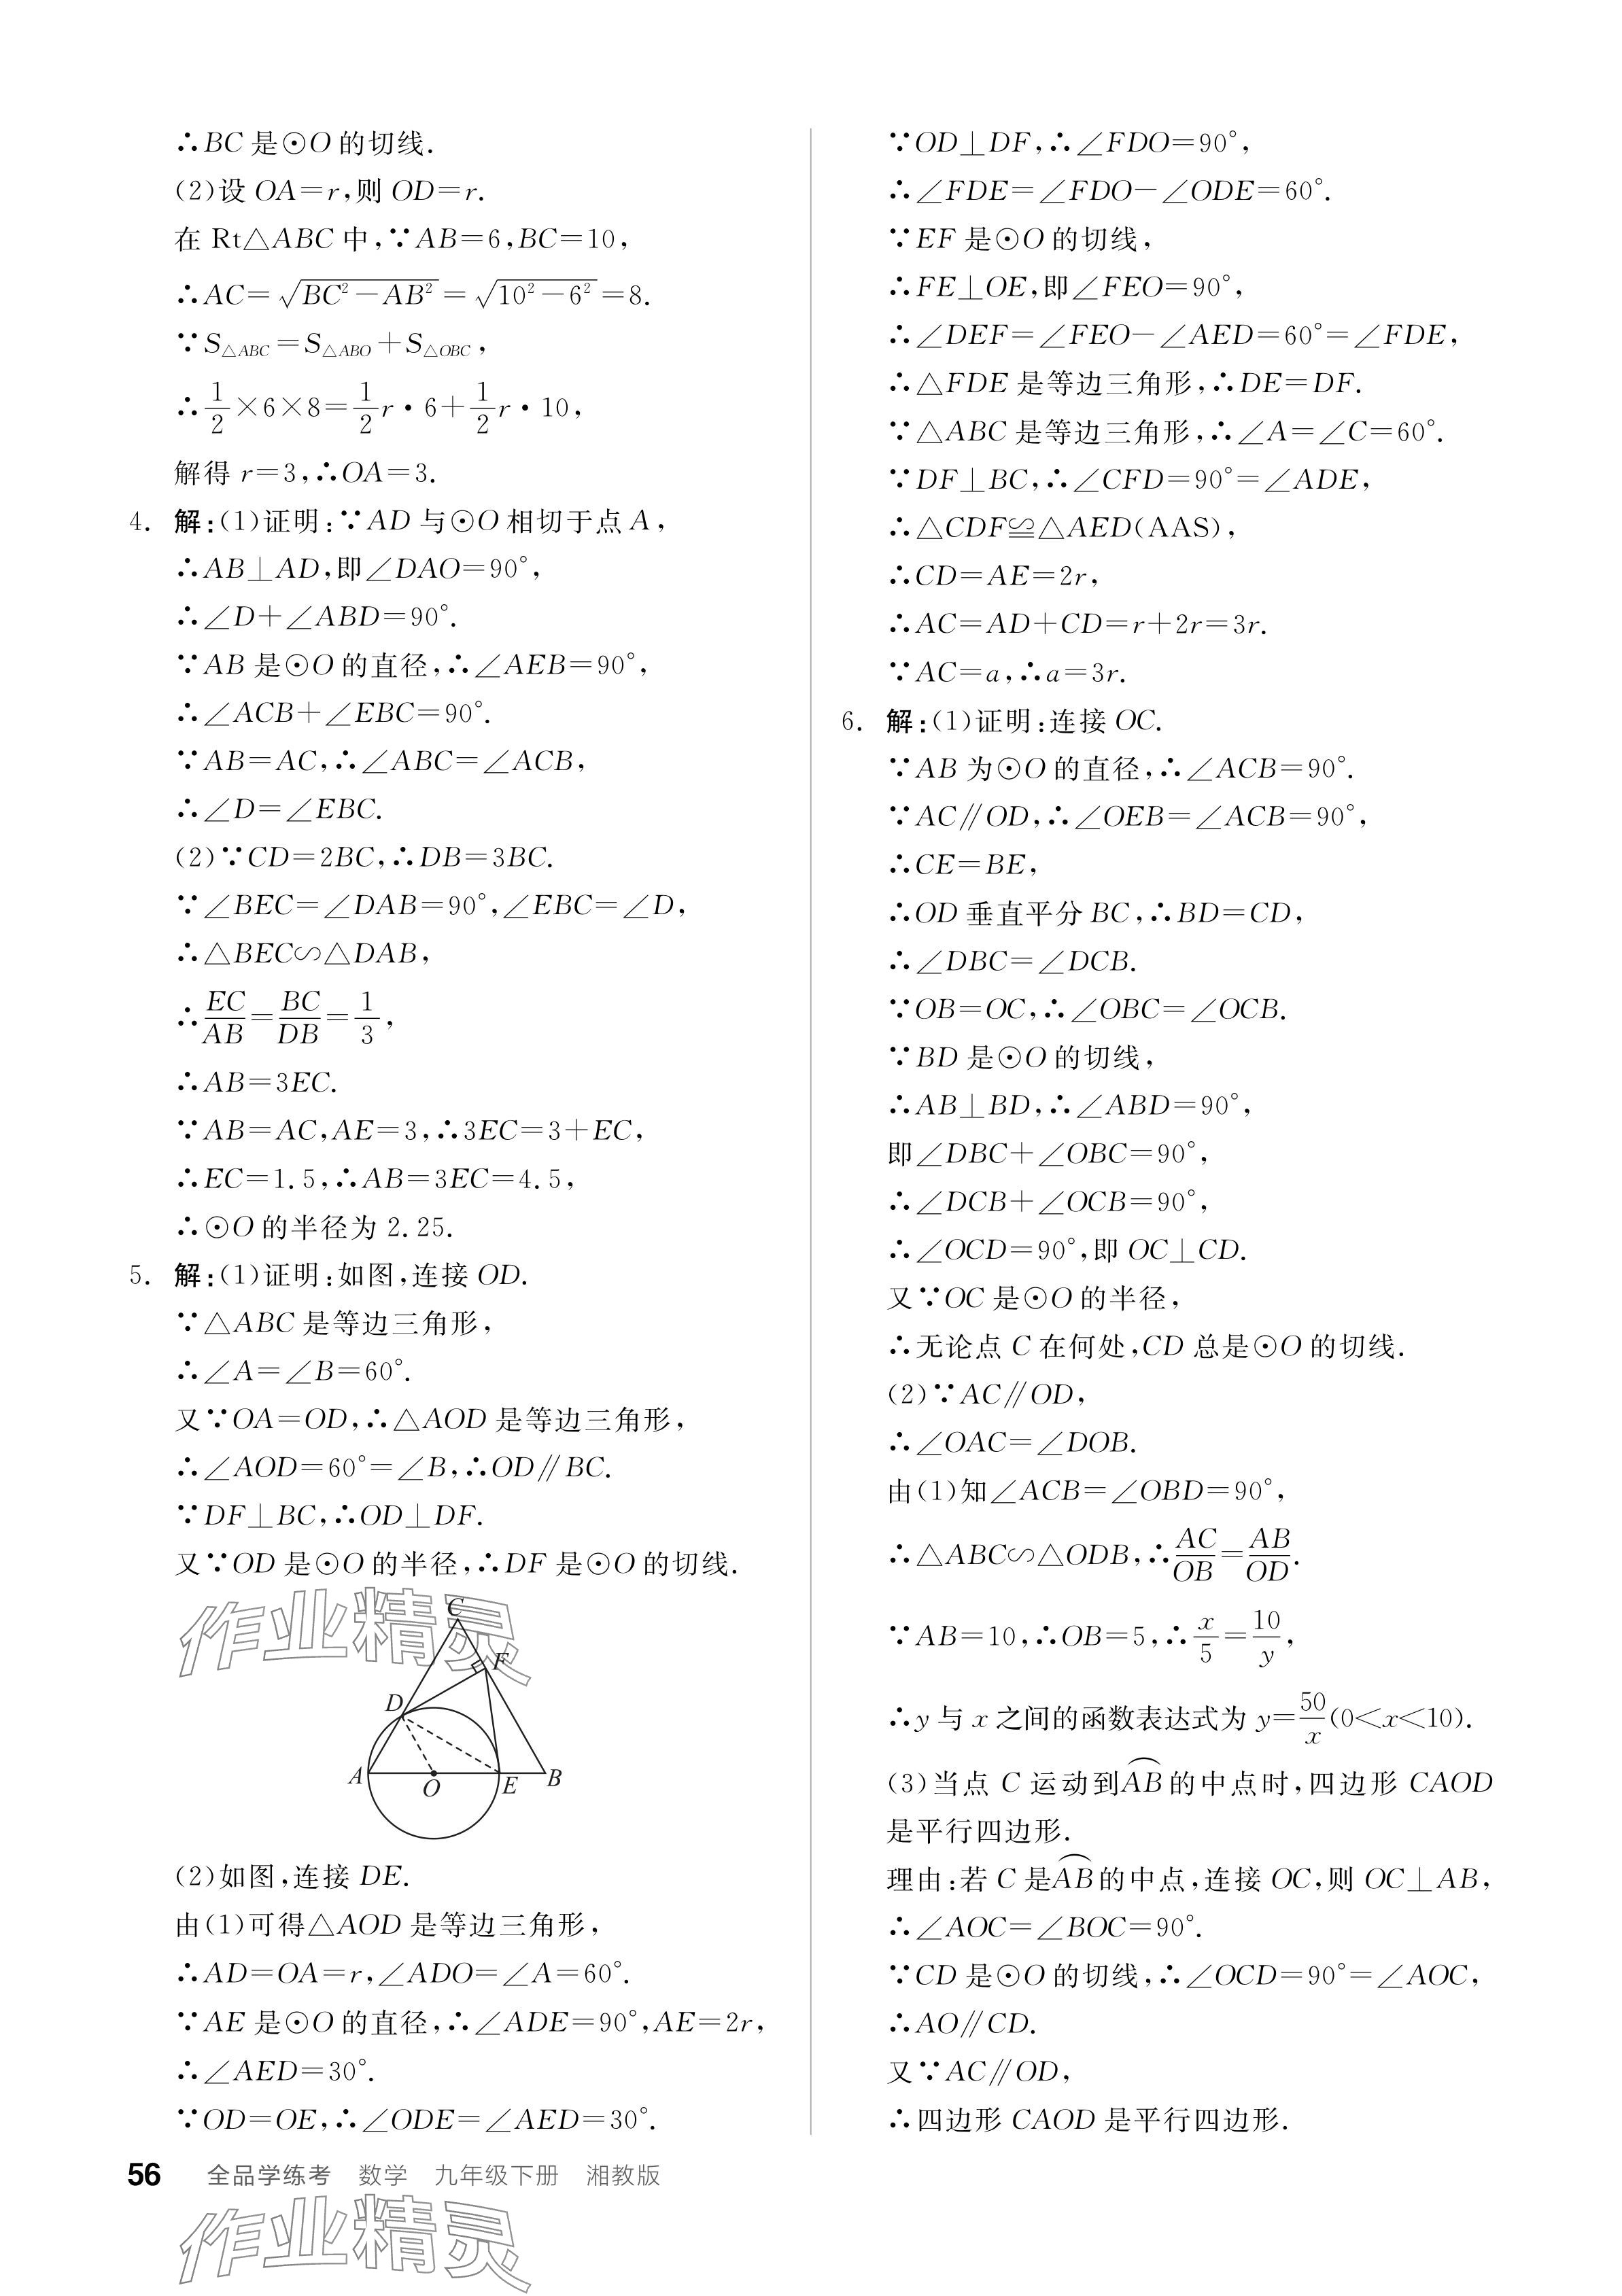 ∴BC是⊙O的切线.
(2)设OA=r,则OD=r.
在Rt△ABC中,∵AB=6,BC=10,
∴AC=√(BC²-AB²)=√(10²-6²)=8.
∵S△ABC=S△ABO+S△OBC,
∴1/2×6×8=1/2r·6+1/2r·10,
解得r=3,∴OA=3.
4. 解:(1)证明:∵AD与⊙O相切于点A,
∴AB⊥AD,即∠DAO=90°,
∴∠D+∠ABD=90°.
∵AB是⊙O的直径,∴∠AEB=90°,
∴∠ACB+∠EBC=90°.
∵AB=AC,∴∠ABC=∠ACB,
∴∠D=∠EBC.
(2)∵CD=2BC,∴DB=3BC.
∵∠BEC=∠DAB=90°,∠EBC=∠D,
∴△BEC∽△DAB,
∴EC/AB=BC/DB=1/3,
∴AB=3EC.
∵AB=AC,AE=3,∴3EC=3+EC,
∴EC=1.5,∴AB=3EC=4.5,
∴⊙O的半径为2.25.
5. 解:(1)证明:如图,连接OD.
∵△ABC是等边三角形,
∴∠A=∠B=60°.
又∵OA=OD,∴△AOD是等边三角形,
∴∠AOD=60°=∠B,∴OD∥BC.
∵DF⊥BC,∴OD⊥DF.
又∵OD是⊙O的半径,∴DF是⊙O的切线.
作业精灵
C
F
D
A
O
E
B
(2)如图,连接DE.
由(1)可得△AOD是等边三角形,
∴AD=OA=r,∠ADO=∠A=60°.
∵AE是⊙O的直径,∴∠ADE=90°,AE=2r,
∴∠AED=30°.
∵OD=OE,∴∠ODE=∠AED=30°.
∵OD⊥DF,∴∠FDO=90°,
∴∠FDE=∠FDO-∠ODE=60°.
∵EF是⊙O的切线,
∴FE⊥OE,即∠FEO=90°,
∴∠DEF=∠FEO-∠AED=60°=∠FDE,
∴△FDE是等边三角形,∴DE=DF.
∵△ABC是等边三角形,∴∠A=∠C=60°.
∵DF⊥BC,∴∠CFD=90°=∠ADE,
∴△CDF≌△AED(AAS),
∴CD=AE=2r,
∴AC=AD+CD=r+2r=3r.
∵AC=a,∴a=3r.
6. 解:(1)证明:连接OC.
∵AB为⊙O的直径,∴∠ACB=90°.
∵AC∥OD,∴∠OEB=∠ACB=90°,
∴CE=BE,
∴OD垂直平分BC,∴BD=CD,
∴∠DBC=∠DCB.
∵OB=OC,∴∠OBC=∠OCB.
∵BD是⊙O的切线,
∴AB⊥BD,∴∠ABD=90°,
即∠DBC+∠OBC=90°,
∴∠DCB+∠OCB=90°,
∴∠OCD=90°,即OC⊥CD.
又∵OC是⊙O的半径,
∴无论点C在何处,CD总是⊙O的切线.
(2)∵AC∥OD,
∴∠OAC=∠DOB.
由(1)知∠ACB=∠OBD=90°,
∴△ABC∽△ODB,∴AC/OB=AB/OD.
∵AB=10,∴OB=5,∴x/5=10/y,
∴y与x之间的函数表达式为y=50/x(0<x<10).
(3)当点C运动到A͡B的中点时,四边形CAOD
是平行四边形.
理由:若C是A͡B的中点,连接OC,则OC⊥AB,
∴∠AOC=∠BOC=90°.
∵CD是⊙O的切线,∴∠OCD=90°=∠AOC,
∴AO∥CD.
又∵AC∥OD,
∴四边形CAOD是平行四边形.
56 全品学练考 数学 九年级下册 湘教版
作业精灵